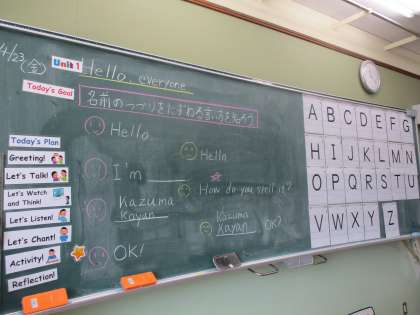 4/23
(金)
Unit 1
Hello, everyone.
Today's Goal
名前のつづりをたずねる言い方を知ろう
Today's Plan
Greeting!
Let's Talk!
Let's Watch and Think!
Let's Listen!
Let's Chant!
Activity!
Reflection!
Hello.
Hello
I'm
How do you spell it?
Kazuma
Kayan
Kazuma
Kayan OK?
OK!
A B C D E F G
H I J K L M N
O P Q R S T U
V W X Y Z